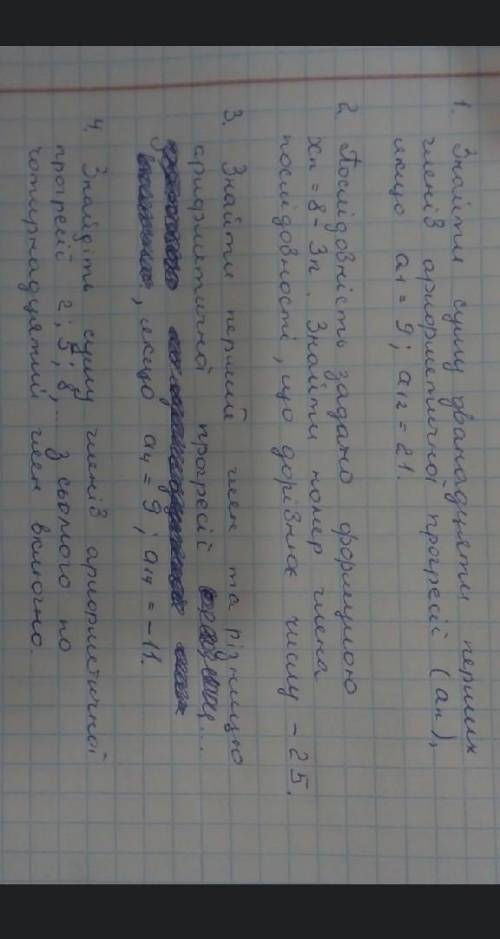 1. Знайти суму дванадцяти перших
членів арифметичної прогресії (an),
якщо a1 = 9; a12 = 21.
2. Послідовність задано формулою
xn = 8 - 3n. Знайти номер члена
послідовності, що дорівнює числу -25.
3. Знайти перший член та різницю
арифметичної прогресії ...
, якщо a4 = 9; a14 = -11.
4. Знайдіть суму членів арифметичної
прогресії 2; 5; 8;... з сьомого по
чотирнадцятий член включно.